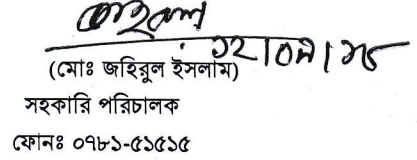 ১২।০৯।১৮
(মোঃ জহিরুল ইসলাম)
সহকারি পরিচালক
ফোনঃ ০৭৮১-৫১৫১৫